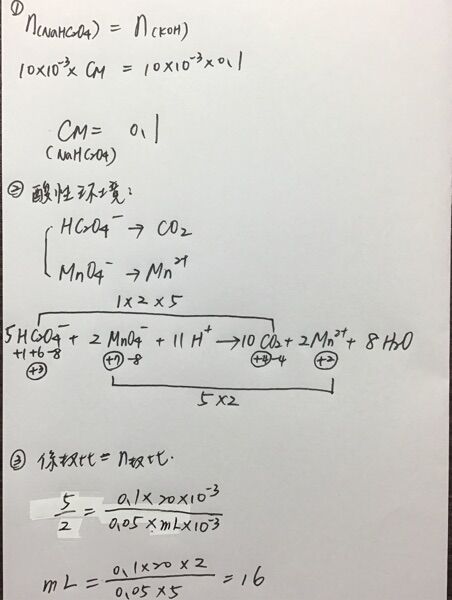 ①
n(NaHC₂O₄) = n(KOH)
10×10⁻³× CM = 10×10⁻³×0,1
CM = 0,1
(NaHC₂O₄)
② 酸性环境:
HC₂O₄⁻ → CO₂
MnO₄⁻ → Mn²⁺
1×2×5
5HC₂O₄⁻ + 2 MnO₄⁻ + 11 H⁺ → 10 CO₂ + 2Mn²⁺ + 8 H₂O
+1+6-8 +7-8 +4-4 +2
+3
5×2
③ 係數比 = n數比.
5/2 = 0,1×20×10⁻³/0,05×mL×10⁻³
mL = 0,1×20×2/0,05×5 = 16